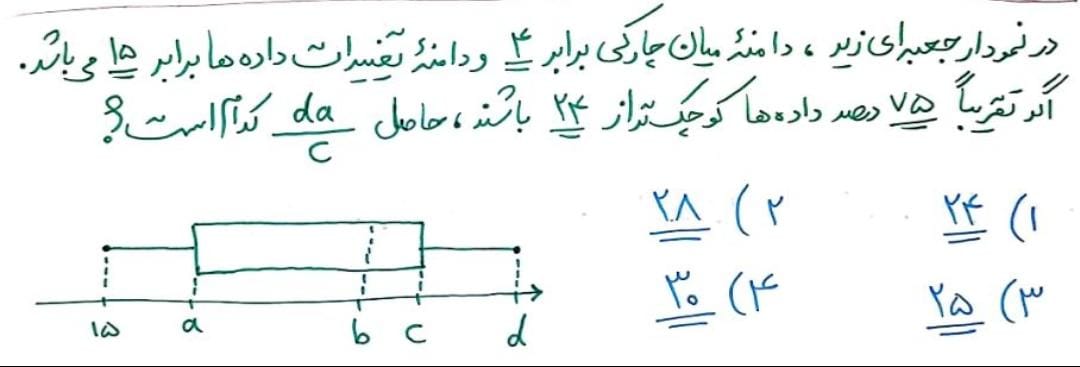 در نمودار جعبه‌ای زیر ، دامنهٔ میان چارکی برابر ۴ و دامنهٔ تغییرات داده‌ها برابر ۱۵ می‌باشد.
اگر تقریباً ۷۵ درصد داده‌ها کوچک‌تر از ۲۴ باشند ، حاصل da/c کدام است؟
۱) ۲۴ ۲) ۲۸
۳) ۲۵ ۴) ۳۰
۱۵ a b c d